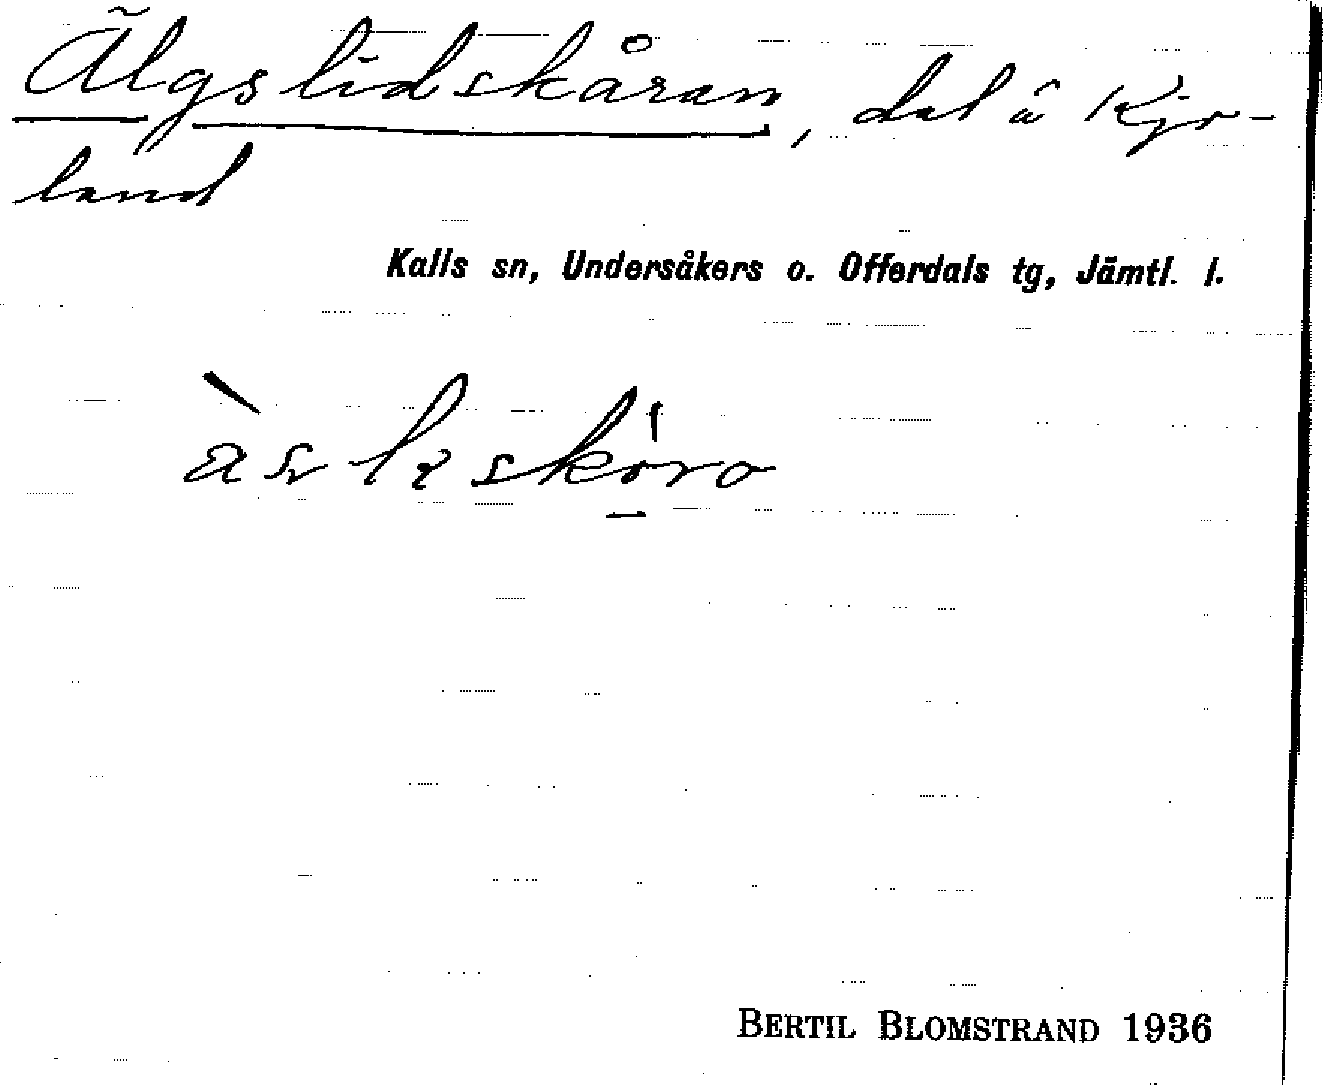 Älgslidskåran, del å Kjo-
land
Kalls sn, Undersåkers o. Offerdals tg, Jämtl. l.
BERTIL BLOMSTRAND 1936